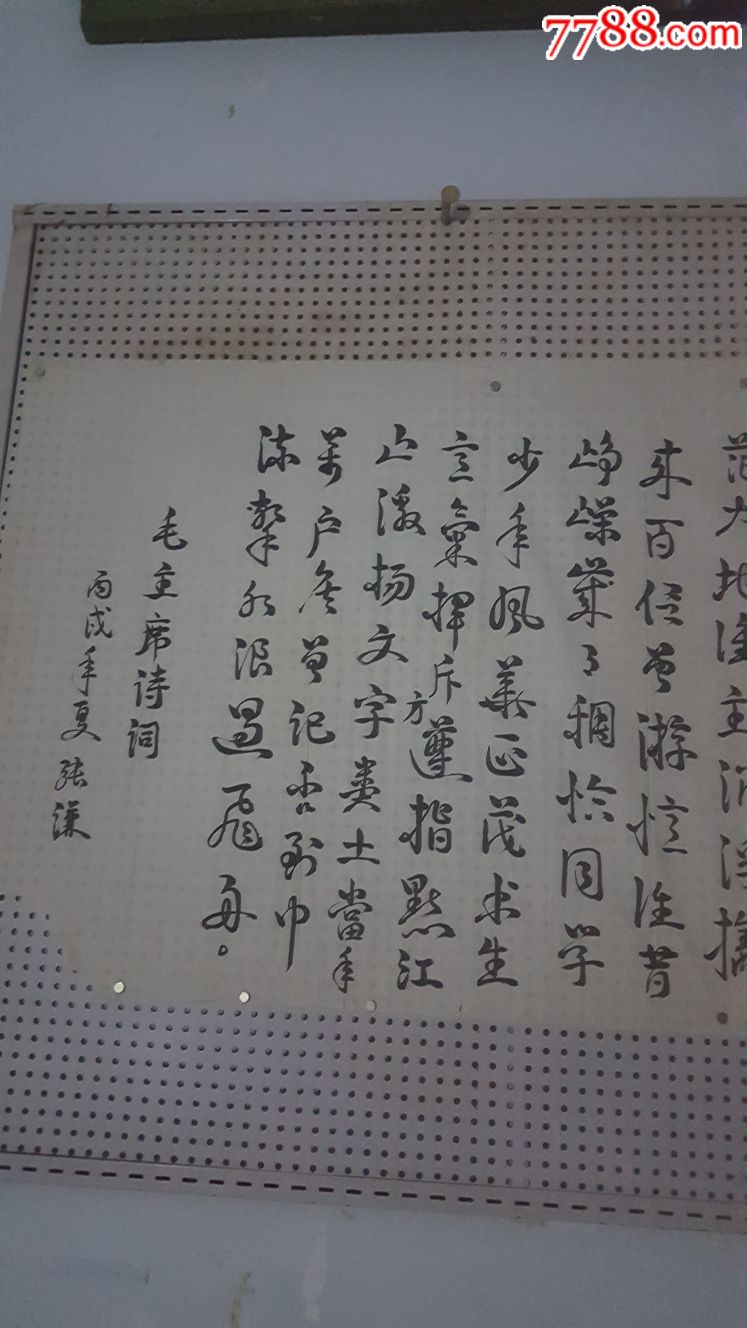 7788.com
茫大地谁主沉浮携
来百侣曾游忆往昔
峥嵘岁月稠恰同学
少年风華正茂书生
意氣揮斥方遒指點江
山激扬文字粪土當年
萬户侯曾记否到中
流擊水浪遏飞舟。
毛主席诗词
丙戌年夏张